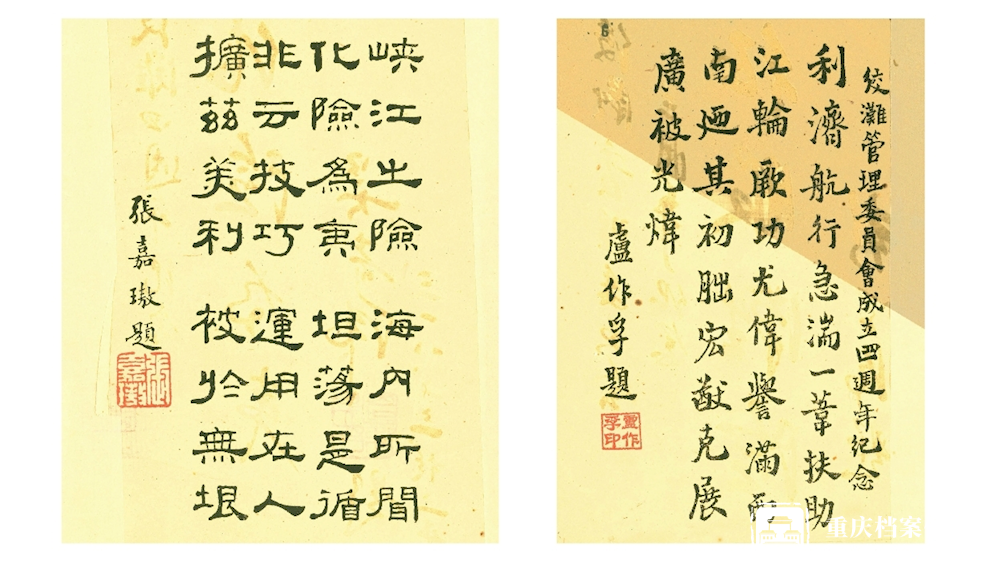 峽江之險 海內所聞
化險為夷 坦蕩是循
非云技巧 運用在人
擴茲美利 被於無垠
張嘉璈題
張嘉璈
6
絞灘管理委員會成立四週年紀念
利濟航行急湍一葦扶助
江輪厥功尤偉譽滿西
南廼其初朏宏猷克展
廣被光煒
盧作孚題
盧作孚印
重庆档案